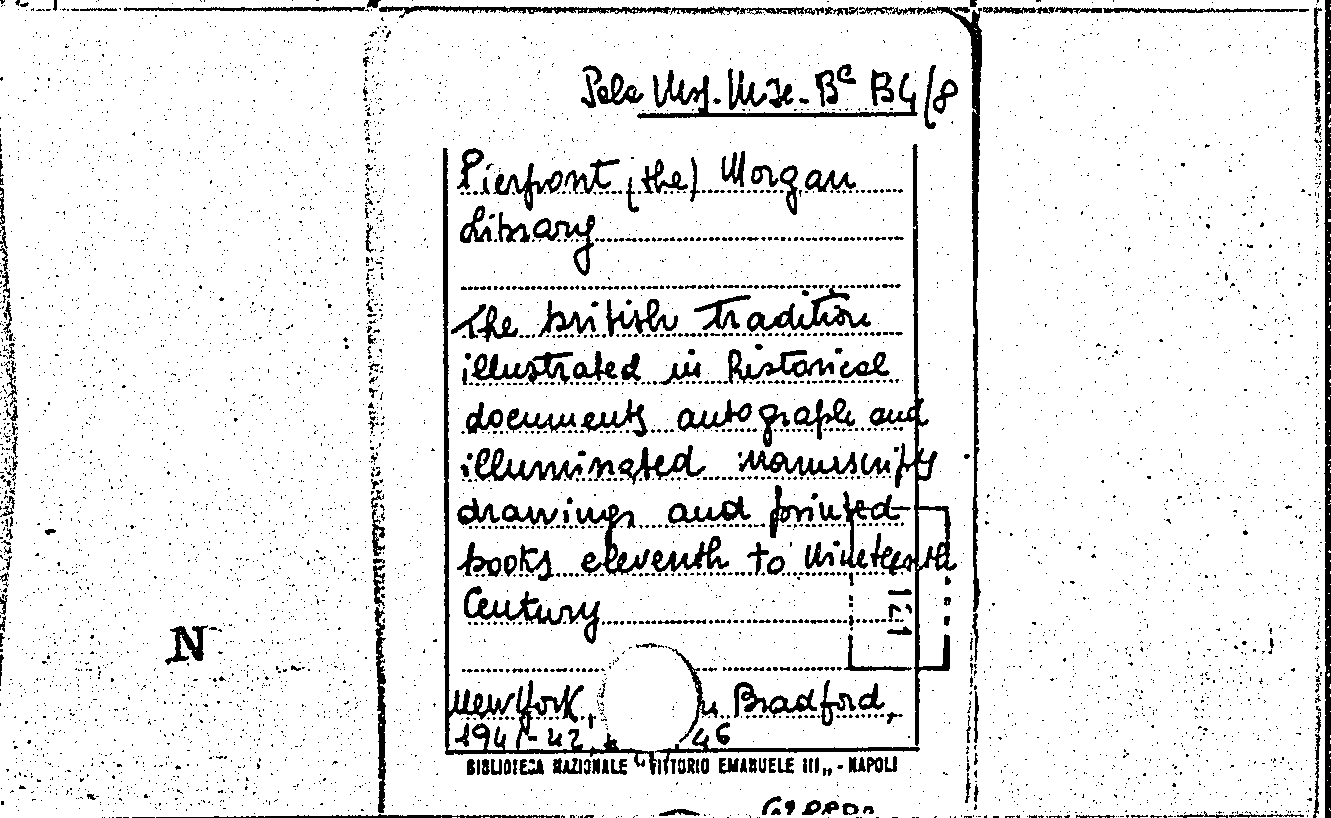 Sala Msf. Mise. Bc B4/8
Pierpont (the) Morgan
Library
The british Tradition
illustrated in historical
documents autograph and
illuminated manuscripts
drawings and printed
books eleventh to Nineteenth
Century
121
N
New York, Bradford,
1941-42, 46
BIBLIOTECA NAZIONALE "VITTORIO EMANUELE III„ - NAPOLI